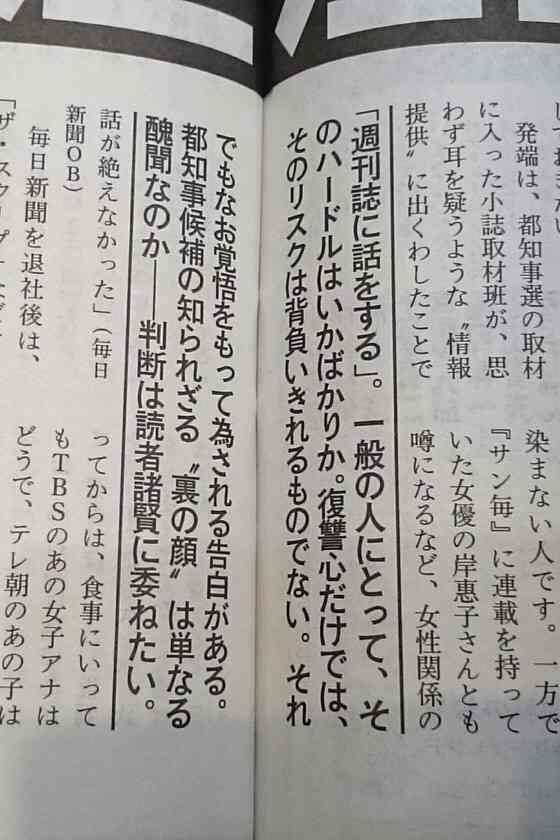 発端は、都知事選の取材
に入った小誌取材班が、思
わず耳を疑うような〝情報
提供〟に出くわしたことで
染まない人です。一方で
『サン毎』に連載を持って
いた女優の岸恵子さんとも
噂になるなど、女性関係の
「週刊誌に話をする」。一般の人にとって、そ
のハードルはいかばかりか。復讐心だけでは、
そのリスクは背負いきれるものでない。それ
でもなお覚悟をもって為される告白がある。
都知事候補の知られざる〝裏の顔〟は単なる
醜聞なのか――判断は読者諸賢に委ねたい。
話が絶えなかった」(毎日
新聞OB)
毎日新聞を退社後は、
ってからは、食事にいって
もTBSのあの女子アナは
どうで、テレ朝のあの子は